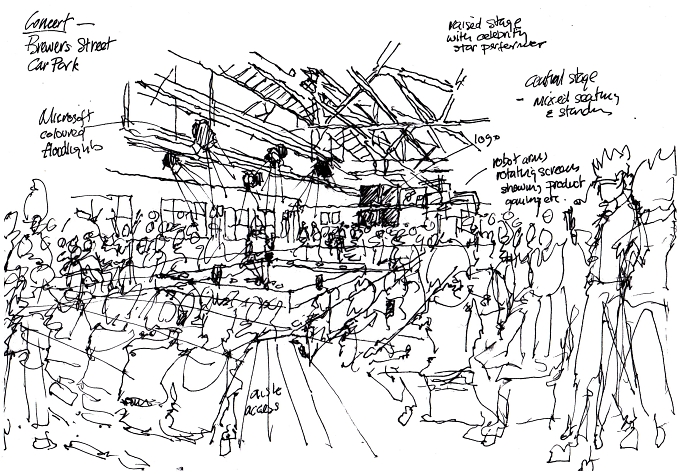 Concert —
Brewers Street
Car Park
raised stage
with celebrity
star performer
central stage
- mixed seating
& standing
Microsoft
coloured
floodlights
logo
robot arms
rotating screens
showing product
gaming etc.
aisle
access